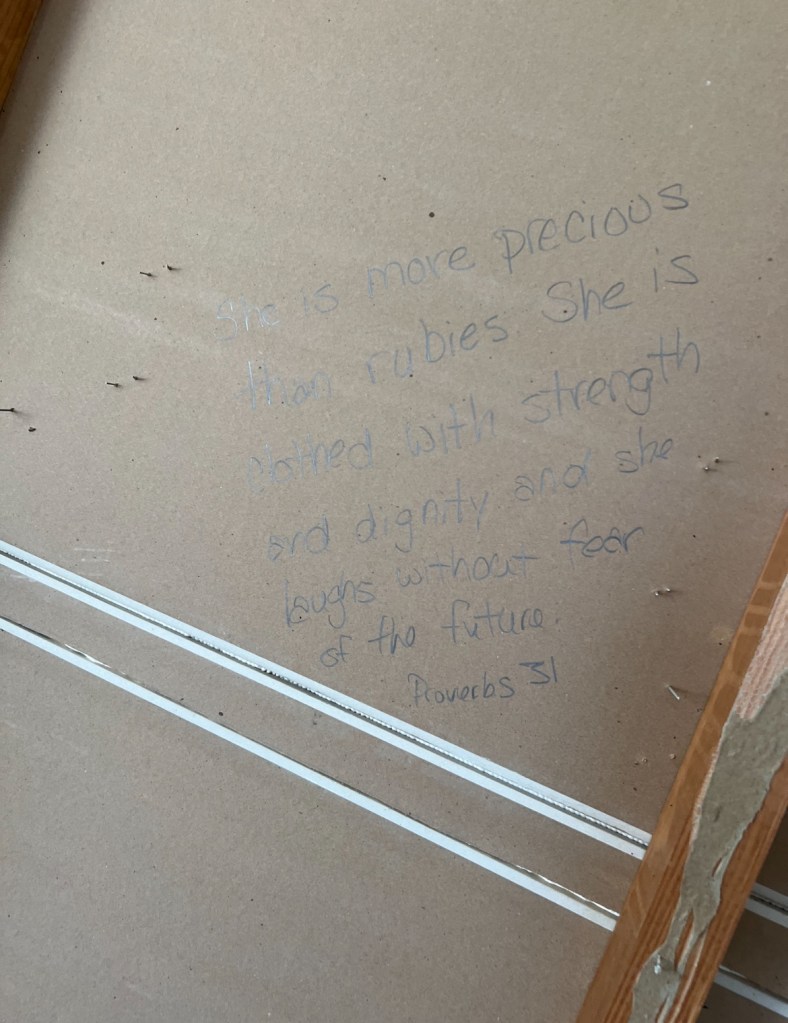 She is more precious
than rubies. She is
clothed with strength
and dignity and she
laughs without fear
of the future.
Proverbs 31